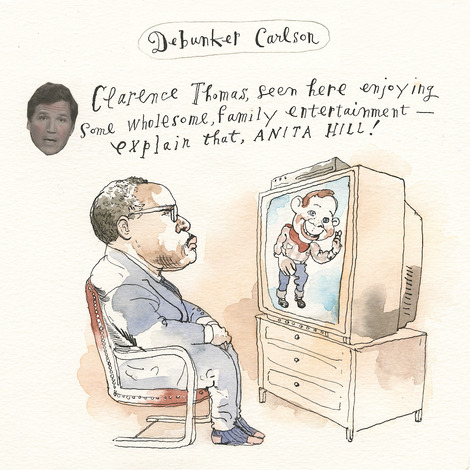 Debunker Carlson
Clarence Thomas, seen here enjoying
some wholesome, family entertainment —
explain that, ANITA HILL!